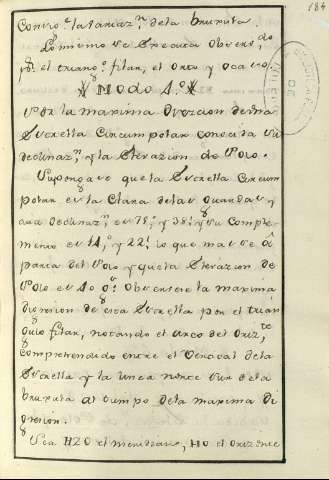 184
Contro.e la variaz.n de la bruxula.
Lo mismo se Execura Observ.do
p.r el triang.o filar, el Orto y Ocaso.
Modo 4.o
Por la maxima Diverzion de una
Estrella Circumpolar conocida su
declinaz.n y la Elevazion de Polo.
Supongase que la Estrella Circum
polar es la Clara de las Guardas y
una declinaz.n es 75.o y 38.' y su Comple
mento es 14.o y 22.' lo que mas se a
parta del Polo y que la Elevazion de
Polo es 40 g.s Observese la maxima
digresion de esta Estrella por el trian
gulo filar, notando el arco del Oriz.te
comprehendido entre el Vertical de la
Estrella y la linea norte Sur de la
bruxula al tiempo de la maxima Di
gresion.
Sea HZO el meridiano, HO el Orizonte